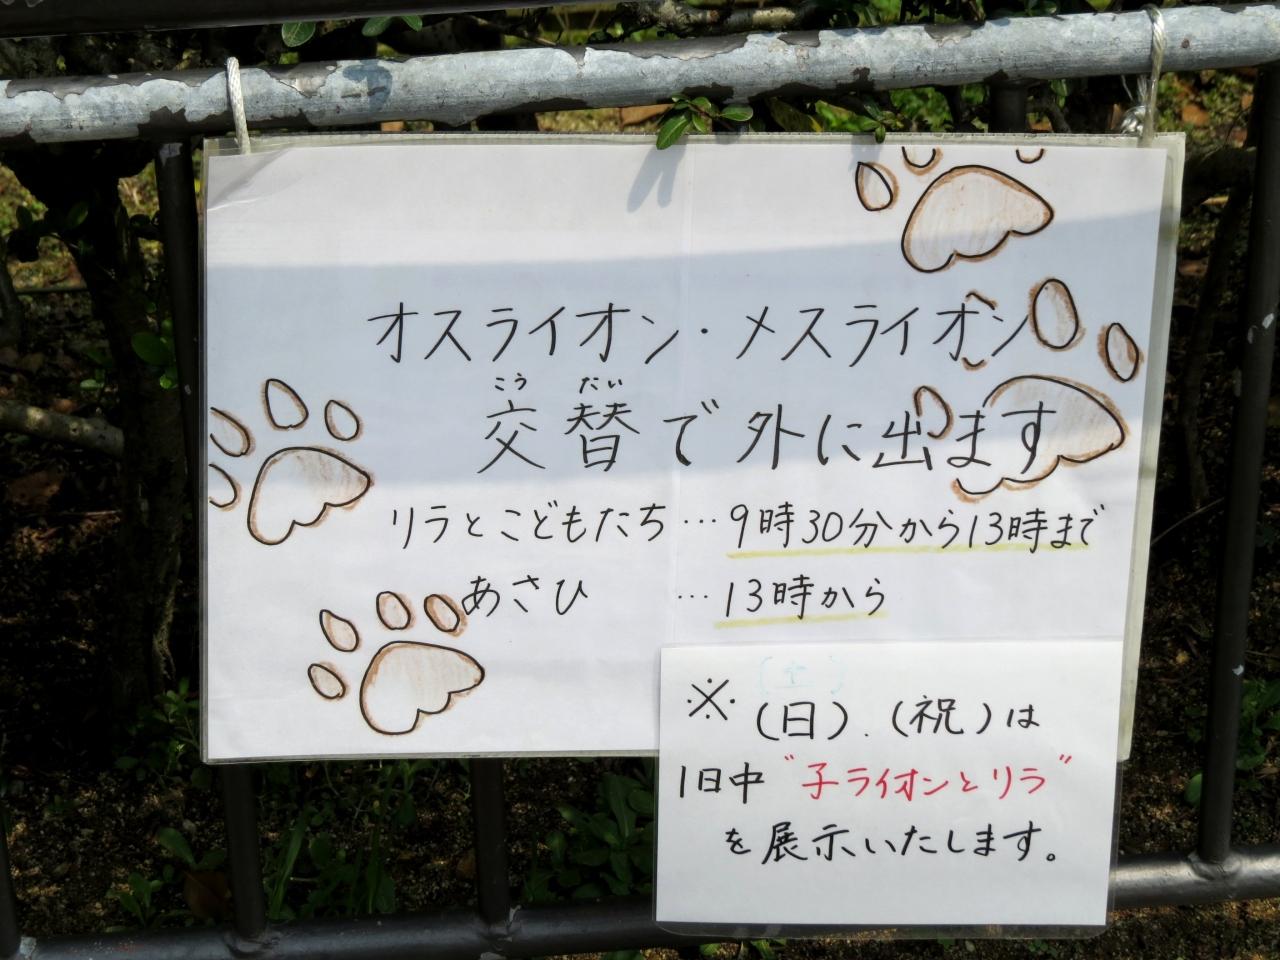 オスライオン・メスライオン
こう たい
交替で外に出ます
リラとこどもたち…9時30分から13時まで
あさひ …13時から
(土)
※(日).(祝)は
1日中"子ライオンとリラ"
を展示いたします。